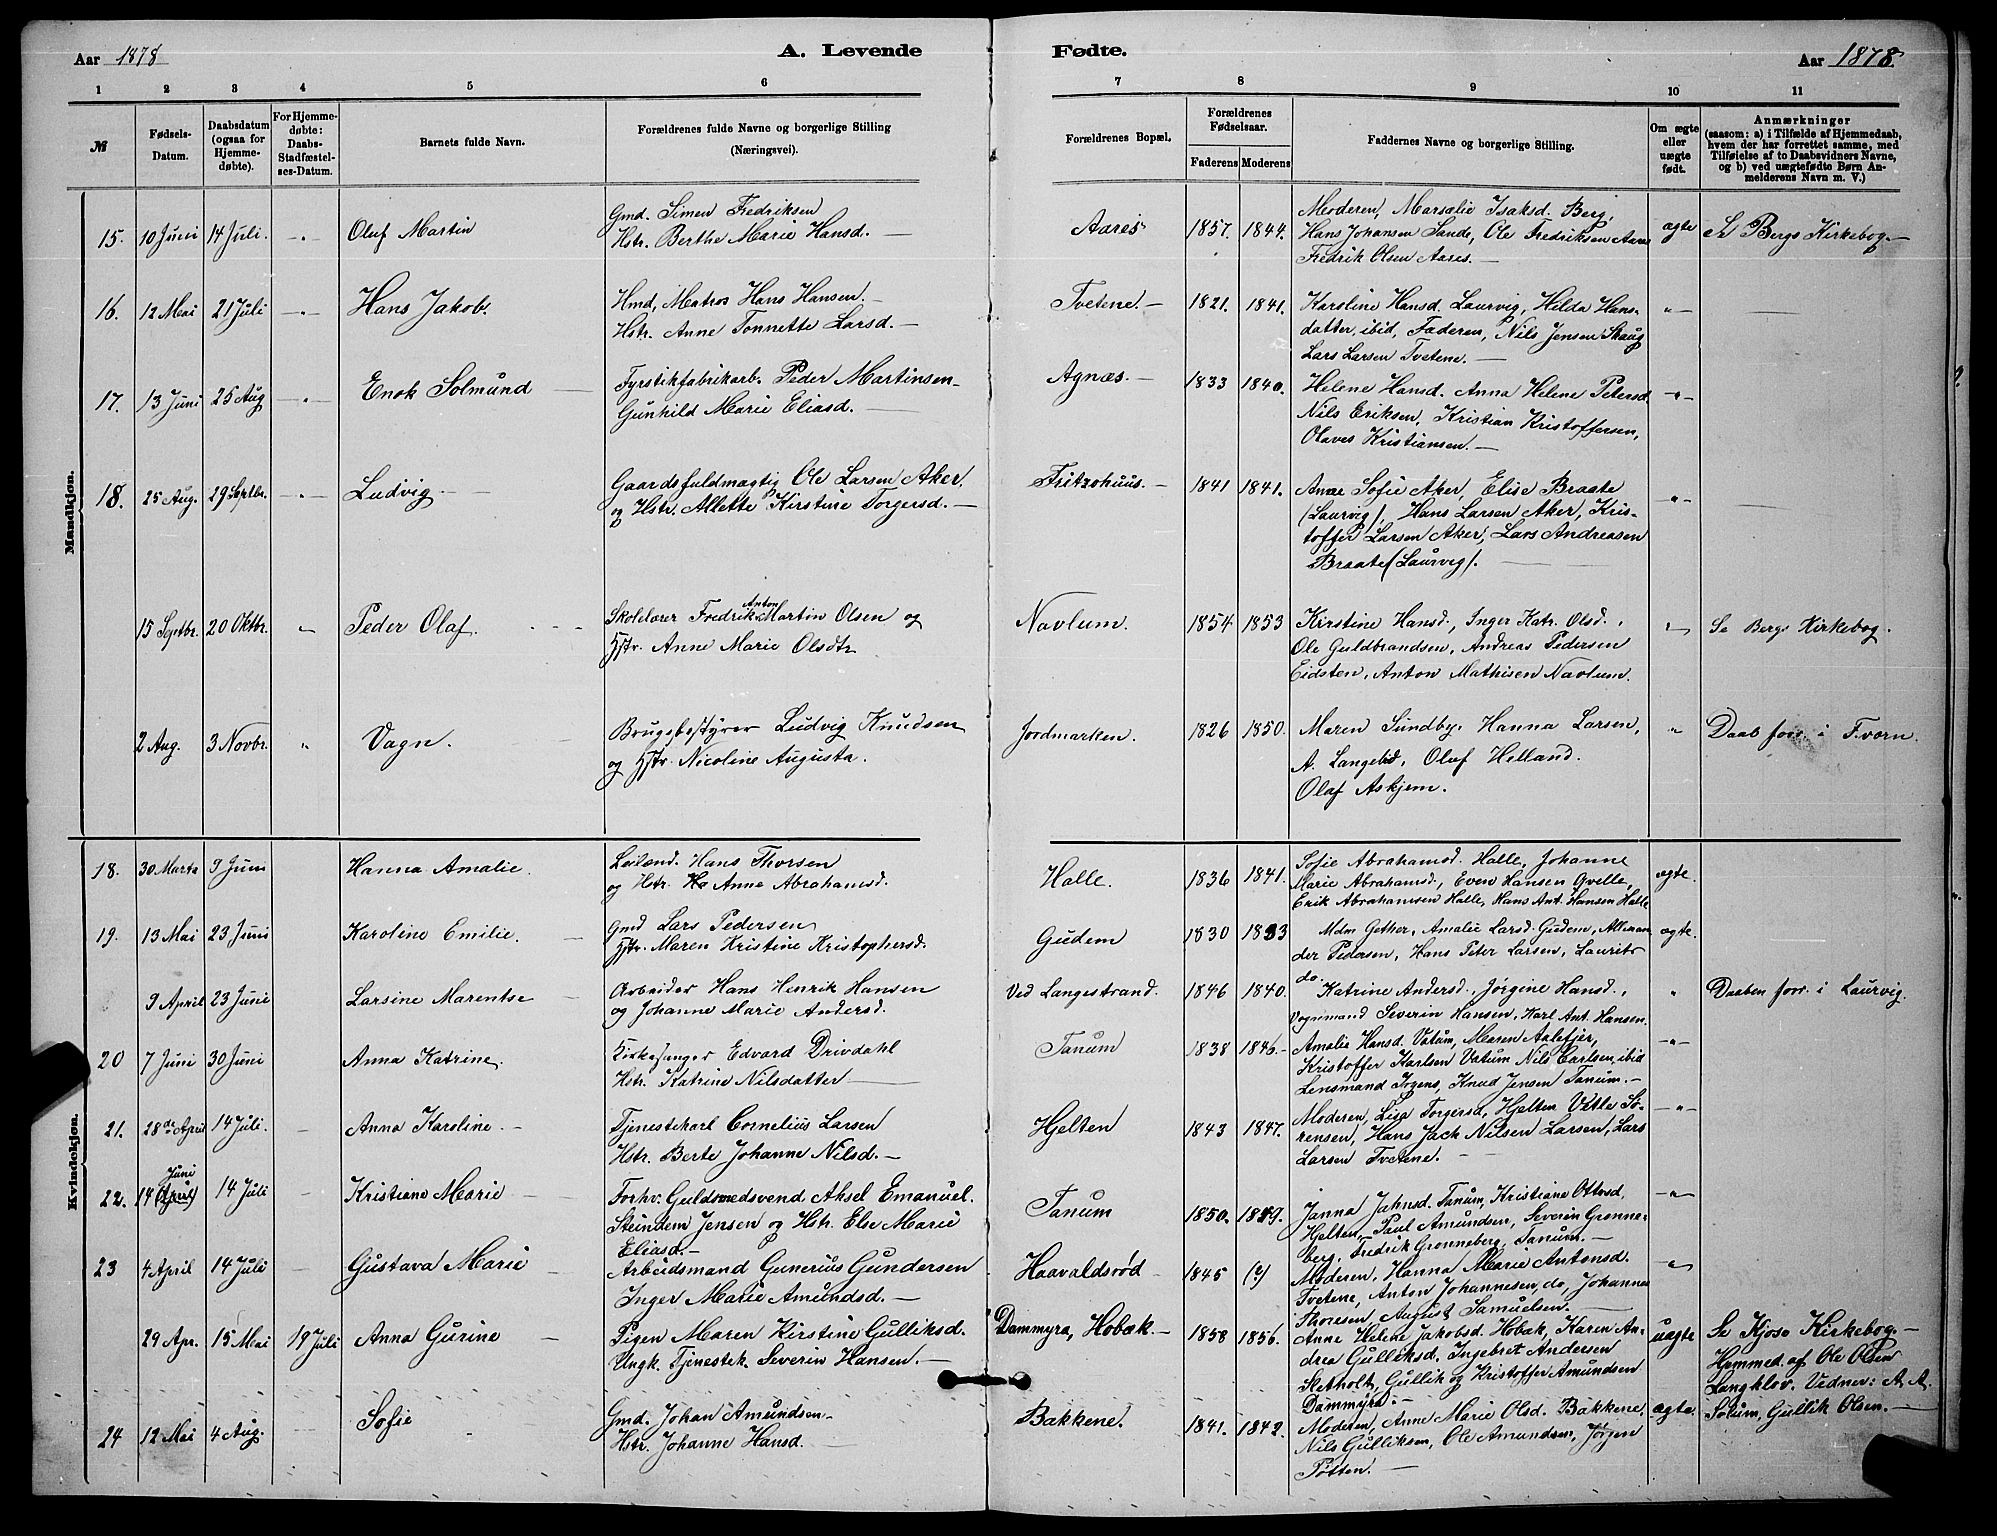 Aar 1878
A. Levende
Fødte.
Aar 1878.
1 2 3 4 5 6 7 8 9 10 11
№
Fødsels-
Datum.
Daabsdatum
(ogsaa for
Hjemme-
døbte).
For Hjemme-
døbte:
Daabs-
Stadfæstel-
ses-Datum.
Barnets fulde Navn.
Forældrenes fulde Navne og borgerlige Stilling
(Næringsvei).
Forældrenes Bopæl.
Forældrenes
Fødselsaar.
Faderens Moderens
Faddernes Navne og borgerlige Stilling.
Om ægte
eller
uægte
født.
Anmærkninger
(saasom: a) i Tilfælde af Hjemmedaab,
hvem der har forrettet samme, med
Tilføielse af to Daabsvidners Navne,
og b) ved uægtefødte Børn An-
melderens Navn m. V.)
Mandkjøn.
15. 10 Juni 14 Juli. -"- Oluf Martin
Gmd. Simen Fredriksen
Hstr. Berthe Marie Hansd. —
Aares 1857. 1844.
Moderen, Marsælie Isaksd. Berg,
Hans Johansen Sande, Ole Fredriksen Aares
Fredrik Olsen Aares. —
ægte Se Bergs Kirkebog. —
16. 12 Mai 21 Juli -"- Hans Jakob.
Hmd, Matros Hans Hansen. —
Hstr. Anne Tonnette Larsd. —
Tvetene. — 1821. 1841.
Karoline Hansd. Laurvig, Hilda Hans-
datter, ibid, Faderen, Nils Jensen Skaug
Lars Larsen Tvetene. —
"-
17. 13 Juni 25 Aug -"- Enok Solmund
Fyrstikfabrikarb. Peder Martinsen -
Gunhild Marie Eliasd. —
Agnæs. — 1833 1840.
Helene Hansd. Anna Helene Petersd.
Nils Eriksen, Kristian Kristoffersen,
Olaves Kristiansen. —
-"-
18. 25 Aug. 29 Septbr. -"- Ludvig. -
Gaardsfuldmægtig Ole Larsen Aker.
og Hstr. Allette Kirstine Torgersd. —
Fritzøhuus. — 1841 1841.
Anne Sofie Aker, Elise Braate
(Laurvig), Hans Larsen Aker, Kris-
toffer Larsen Aker, Lars Andreasen
Braate (Laurvig). —
-"-
15 Septbr. 20 Oktbr. " Peder Olaf.
Skolelærer Fredrik Anton Martin Olsen og
Hstr. Anne Marie Olsdtr
Navlum. 1854 1853
Kirstine Hansd., Inger Katr. Olsd.,
Ole Guldbrandsen, Andreas Pedersen
Eidsten, Anton Mathisen Navlum.
" Se Bergs Kirkebog.
2 Aug. 3 Novbr. " Vagn.
Brugsbestyrer Ludvig Knudsen
og Hstr. Nicoline Augusta.
Jordmarken. 1826 1850.
Maren Sundby, Hanna Larsen,
A. Langelid, Oluf Helland.
Olaf Askjem.
" Daab forr. i F.værn.
Kvindekjøn.
18. 30 Marts 9 Juni Hanna Amalie.
Leilænd. Hans Thorsen
og Hstr. Anne Abrahamsd.
Halle. 1836 1841.
Sofie Abrahamsd. Halle, Johanne
Marie Abrahamsd., Even Hansen Gvelle,
Erik Abrahamsen Halle, Hans Ant. Hansen Halle
ægte.
19. 13 Mai 23 Juni Karoline Emilie. —
Gmd Lars Pedersen
Hstr. Maren Kristine Kristophersd.
Gudem 1830 1833
Mdm Gether, Amalie Larsd. Gudem, Allexan
der Pedersen, Hans Peter Larsen, Laurits
do.
ægte.
9 April 23 Juni Larsine Marentse —
Arbeider Hans Henrik Hansen
og Johanne Marie Andersd.
Ved Langestrand. 1846 1840.
Katrine Andersd., Jørgine Hansd.,
Vognmand Severin Hansen, Karl Ant. Hansen.
" Daaben forr. i Laurvig.
20 7 Juni 30 Juni Anna Katrine.
Kirkesanger Edvard Drivdahl
Hstr. Katrine Nilsdatter —
Tanum 1838 1846.-
Amalie Hansd. Vatum, Maren Aalefjær,
Kristoffer Karlsen Vatum Nils Carlsen, ibid
Lensmand Irgens, Knud Jensen Tanum. —
-"-
21. 28de April 14 Juli. - Anna Karoline. -
Tjenestekarl Cornelius Larsen
Hstr. Berte Johanne Nilsd. —
Hjelten 1843 1847.
Moderen, Lise Torgersd, Hjelten Vetle Sø-
rensen, Hans Jack Nilsen Larsen, Lars
Larsen Tvetene. -
-"-
22. 14 Juni (April) 14 Juli - Kristiane Marie —
Forhv. Guldsmedsvend Aksel Emanuel
Steindem Jensen og Hstr. Else Marie
Eliasd. —
Tanum 1850. 1849.
Janna Jahnsd. Tanum, Kristiane Ottosd,
Hjelten, Paul Amundsen, Severin Grønne-
berg, Fredrik Grønneberg, Tanum. —
-"-
23 4 April 14 Juli — Gustava Marie
Arbeidsmand Gunerius Gundersen
Inger Marie Amundsd. —
Haavaldsrød 1845 (?)
Moderen, Hanna Marie Antonsd.
Tvetene, Anton Johannesen, do, Johannes
Thoresen, August Samuelsen. —
-"-
29 Apr. 15 Mai 19 Juli Anna Gurine —
Pigen Maren Kirstine Gulliksd.
Ungk. Tjenestek. Severin Hansen. —
Dammyra, Hobæk. — 1858 1856.
Anne Helene Jakobsd. Hobæk, Karen An-
drea Gulliksd. Ingebret Andersen
Skatholt, Gullik og Kristoffer Amundsen
Dammyra. —
uægte Se Kjose Kirkebog. —
Hjemmed. af Ole Olsen
Langklov. Vedner: A. A.
Solum, Gullik Olsen. —
24 12 Mai 4 Aug. — Sofie
Gmd. Johan Amundsen -
Hstr. Johanne Hansd. —
Bakkene. 1841. 1842.
Moderen, Anne Marie Olsd. Bakkene,
Nils Gulliksen, Ole Amundsen, Jørgen
Pøtten. —
ægte.